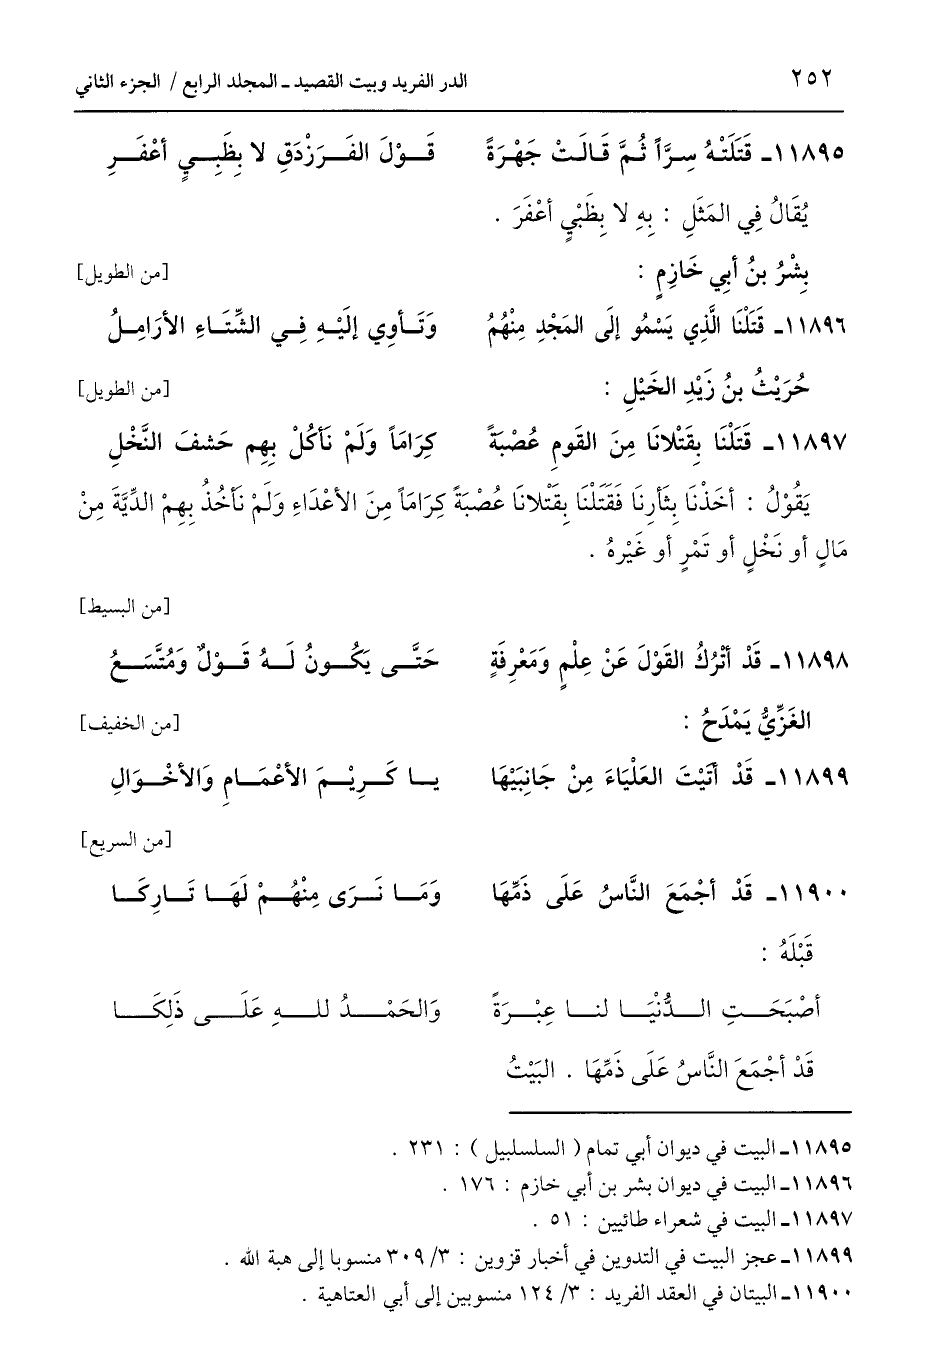 ٢٥٢ الدر الفريد وبيت القصيد ـ المجلد الرابع / الجزء الثاني
١١٨٩٥ـ قَتَلَتْهُ سِرَّاً ثُمَّ قَالَتْ جَهْرَةً قَوْلَ الفَرَزْدَقِ لا بِظَبِيٍ أعْفَرِ
يُقَالُ فِي المَثَلِ : بِهِ لا بِظَبْيٍ أعْفَرَ .
بِشْرُ بنُ أبِي خَازِمٍ : [من الطويل]
١١٨٩٦ـ قَتَلْنَا الَّذِي يَسْمُو إلَى المَجْدِ مِنْهُمُ وَتَأوِي إلَيْهِ فِي الشِّتَاءِ الأرَامِلُ
حُرَيْثُ بنُ زَيْدِ الخَيْلِ : [من الطويل]
١١٨٩٧ـ قَتَلْنَا بِقَتْلانَا مِنَ القَومِ عُصْبَةً كِرَامَاً وَلَمْ نَأكُلْ بِهِم حَشفَ النَّخْلِ
يَقُوْلُ : أخَذْنَا بِثَأرِنَا فَقَتَلْنَا بِقَتْلانَا عُصْبَةً كِرَامَاً مِنَ الأعْدَاءِ وَلَمْ نَأخُذُ بِهِمْ الدِّيَّةَ مِنْ
مَالٍ أو نَخْلٍ أو تَمْرٍ أو غَيْرهُ .
[من البسيط]
١١٨٩٨ـ قَدْ أتْرُكُ القَوْلَ عَنْ عِلْمٍ وَمَعْرِفَةٍ حَتَّى يَكُونُ لَهُ قَوْلٌ وَمُتَّسَعُ
الغَزِّيُّ يَمْدَحُ : [من الخفيف]
١١٨٩٩ـ قَدْ أتَيْتَ العَلْيَاءَ مِنْ جَانِبَيْهَا يا كَرِيْمَ الأعْمَامِ وَالأخْوَالِ
[من السريع]
١١٩٠٠ـ قَدْ أجْمَعَ النَّاسُ عَلَى ذَمِّهَا وَمَا نَرَى مِنْهُمْ لَهَا تَارِكَا
قَبْلَهُ :
أصْبَحَتِ الدُّنْيَا لنا عِبْرَةً وَالحَمْدُ للهِ عَلَى ذَلِكَا
قَدْ أجْمَعَ النَّاسُ عَلَى ذَمِّهَا . البَيْتُ
١١٨٩٥ـ البيت في ديوان أبي تمام ( السلسلبيل ) : ٢٣١ .
١١٨٩٦ـ البيت في ديوان بشر بن أبي خازم : ١٧٦ .
١١٨٩٧ـ البيت في شعراء طائيين : ٥١ .
١١٨٩٩ـ عجز البيت في التدوين في أخبار قزوين : ٣/ ٣٠٩ منسوبا إلى هبة الله .
١١٩٠٠ـ البيتان في العقد الفريد : ٣/ ١٢٤ منسوبين إلى أبي العتاهية .